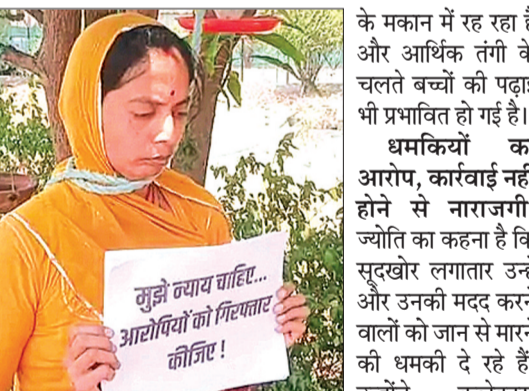 मुझे न्याय चाहिए...
आरोपियों को गिरफ्तार
कीजिए !
के मकान में रह रहा है
और आर्थिक तंगी के
चलते बच्चों की पढ़ाई
भी प्रभावित हो गई है।
धमकियों का
आरोप, कार्रवाई नहीं
होने से नाराजगी
ज्योति का कहना है कि
सूदखोर लगातार उन्हें
और उनकी मदद करने
वालों को जान से मारने
की धमकी दे रहे हैं